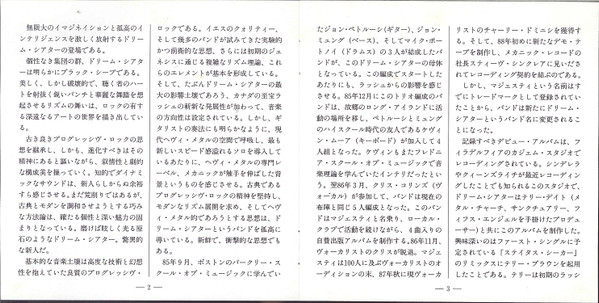 無限大のイマジネイションと孤高のイ
ンテリジェンスを激しく放射するドリー
ム・シアターの登場である。
個性なき集団の群、ドリーム・シアタ
ーは明らかにブラック・シープである。
美しく、しかし破壊的で、聴く者のハー
トを射抜く鋭いパンチと華麗な舞踏を想
起させるリズムの舞いは、ロックの有す
る深遠なるアートの世界を描き出してい
る。
古き良きプログレッシヴ・ロックの思
想を継承し、しかも、進化すべきはその
精神にあると謳いながら、叙情性と劇的
な構成美を操っていく。知的でダイナミ
ックなサウンドは、新人らしからぬ余裕
すら感じさせる。まだ荒削りではあるが、
古典とモダンを創和させようとする巧み
な方法論は、確たる個性と深い魅力の固
まりとなっている。磨けば眩しく光る原
石のようなドリーム・シアター。驚異的
な新人だ。
基本的な音楽土壌は高度な技術と幻想
性を抱えていた良質のプログレッシヴ・
ロックである。イエスのクォリティー、
そして幾多のバンドが試みてきた実験的
かつ前衛的な思想、さらには初期のジェ
ネシスに通じる複雑なリズム理論、これ
らのエレメントが基本を形成している。
そして、たぶんドリーム・シアターの最
大の影響土壌であろう、カナダの至宝ラ
ッシュの斬新な発展性が加わって、音楽
の方向性は設定されている。しかし、ギ
タリストの奏法にも明らかなように、現
代ヘヴィ・メタルの空間で呼吸し、最も
新しいスピード感溢れるソロを導入して
いるあたりに、ヘヴィ・メタルの専門レ
ーベル、メカニックが触手を伸ばした背
景というものを感じさせる。古典である
プログレッシヴ・ロックの精神を堅持し、
モダンなリズム展開を求め、そしてヘヴ
ィ・メタル的であろうとする思想は、ド
リーム・シアターというバンドを孤高に
導いている。斬新で、衝撃的な思想でも
ある。
85年9月、ボストンのバークリー・ス
クール・オブ・ミュージックに学んでい
— 2 —
たジョン・ペトルーシ(ギター)、ジョン・
ミュング(ベース)、そしてマイク・ポー
トノイ(ドラムス)の3人が結成したバ
ンドが、このドリーム・シアターの母体
となっている。この編成でスタートした
あたりにも、ラッシュからの影響を感じ
させる。85年12月にこのトリオ編成のバ
ンドは、故郷のロング・アイランドに活
動の場所を移し、ペトルーシとミュング
のハイスクール時代の友人であるケヴィ
ン・ムーア(キーボード)が加入して4
人組となった。ケヴィンもまたフレドニ
ア・スクール・オブ・ミュージックで音
楽理論を学んでいたインテリだったとい
う。翌86年3月、クリス・コリンズ(ヴ
ォーカル)が参加して、バンドは現在の
布陣と同じ5人編成となった。このバン
ドはマジェスティと名乗り、ローカル・
クラブで活動を続けながら、4曲入りの
自費出版アルバムを制作する。86年11月、
ヴォーカリストのクリスが脱退。マジェ
スティは100人に及ぶヴォーカリストのオ
ーディションの末、87年秋に現ヴォーカ
リストのチャーリー・ドミニシを獲得す
る。そして、88年初めに新たなデモ・テ
ープを制作し、メカニック・レコードの
社長スティーヴ・シンクレアに見いださ
れてレコーディング契約を結ぶのである。
しかし、マジェスティという名前はす
でにトレードマークとして登録されてい
たことから、バンドは新たにドリーム・
シアターというバンド名に変更されるこ
とになった。
記録すべきデビュー・アルバムは、フ
ィラデルフィアのカジェム・スタジオで
レコーディングされている。シンデレラ
やクィーンズライチが最近レコーディン
グしたことでも知られるこのスタジオで、
ドリーム・シアターはテリー・デイト(メ
タル・チャーチ、サンクチュアリー、フ
ィフス・エンジェルを手掛けたプロデュ
ーサー)と共にこのアルバムを制作した。
興味深いのはファースト・シングルに予
定されている『ステイタス・シーカー』
のリミックスにテリー・ブラウンを起用
したことである。テリーは初期のラッシ
— 3 —